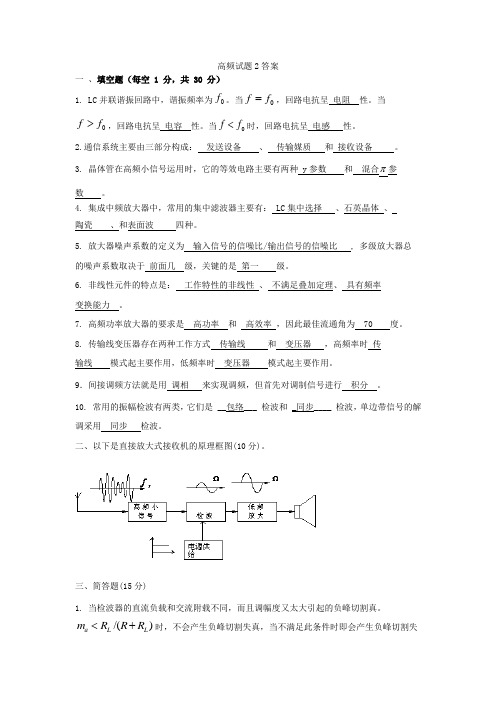 高频试题2答案
一 、填空题（每空 1 分，共 30 分）
1. LC并联谐振回路中，谐振频率为f₀。当f = f₀，回路电抗呈 电阻 性。当
f > f₀，回路电抗呈 电容 性。当f < f₀时，回路电抗呈 电感 性。
2.通信系统主要由三部分构成： 发送设备 、 传输媒质 和 接收设备 。
3. 晶体管在高频小信号运用时，它的等效电路主要有两种 y参数 和 混合π参
数 。
4. 集成中频放大器中，常用的集中滤波器主要有： LC集中选择 、石英晶体 、
陶瓷 、和表面波 四种。
5. 放大器噪声系数的定义为 输入信号的信噪比/输出信号的信噪比 ，多级放大器总
的噪声系数取决于 前面几 级，关键的是 第一 级。
6. 非线性元件的特点是： 工作特性的非线性 、 不满足叠加定理、 具有频率
变换能力 。
7. 高频功率放大器的要求是 高功率 和 高效率 ，因此最佳流通角为 70 度。
8. 传输线变压器存在两种工作方式 传输线 和 变压器 ，高频率时 传
输线 模式起主要作用，低频率时 变压器 模式起主要作用。
9．间接调频方法就是用 调相 来实现调频，但首先对调制信号进行 积分 。
10. 常用的振幅检波有两类，它们是 __包络___ 检波和 _同步____ 检波，单边带信号的解
调采用 同步 检波。
二、以下是直接放大式接收机的原理框图(10分)。
Ω Ω
高频小
信号
检波
低频
放大
三、简答题(15分)
1. 当检波器的直流负载和交流附载不同，而且调幅度又太大引起的负峰切割真。
mₐ < R_L /(R + R_L)时，不会产生负峰切割失真，当不满足此条件时即会产生负峰切割失